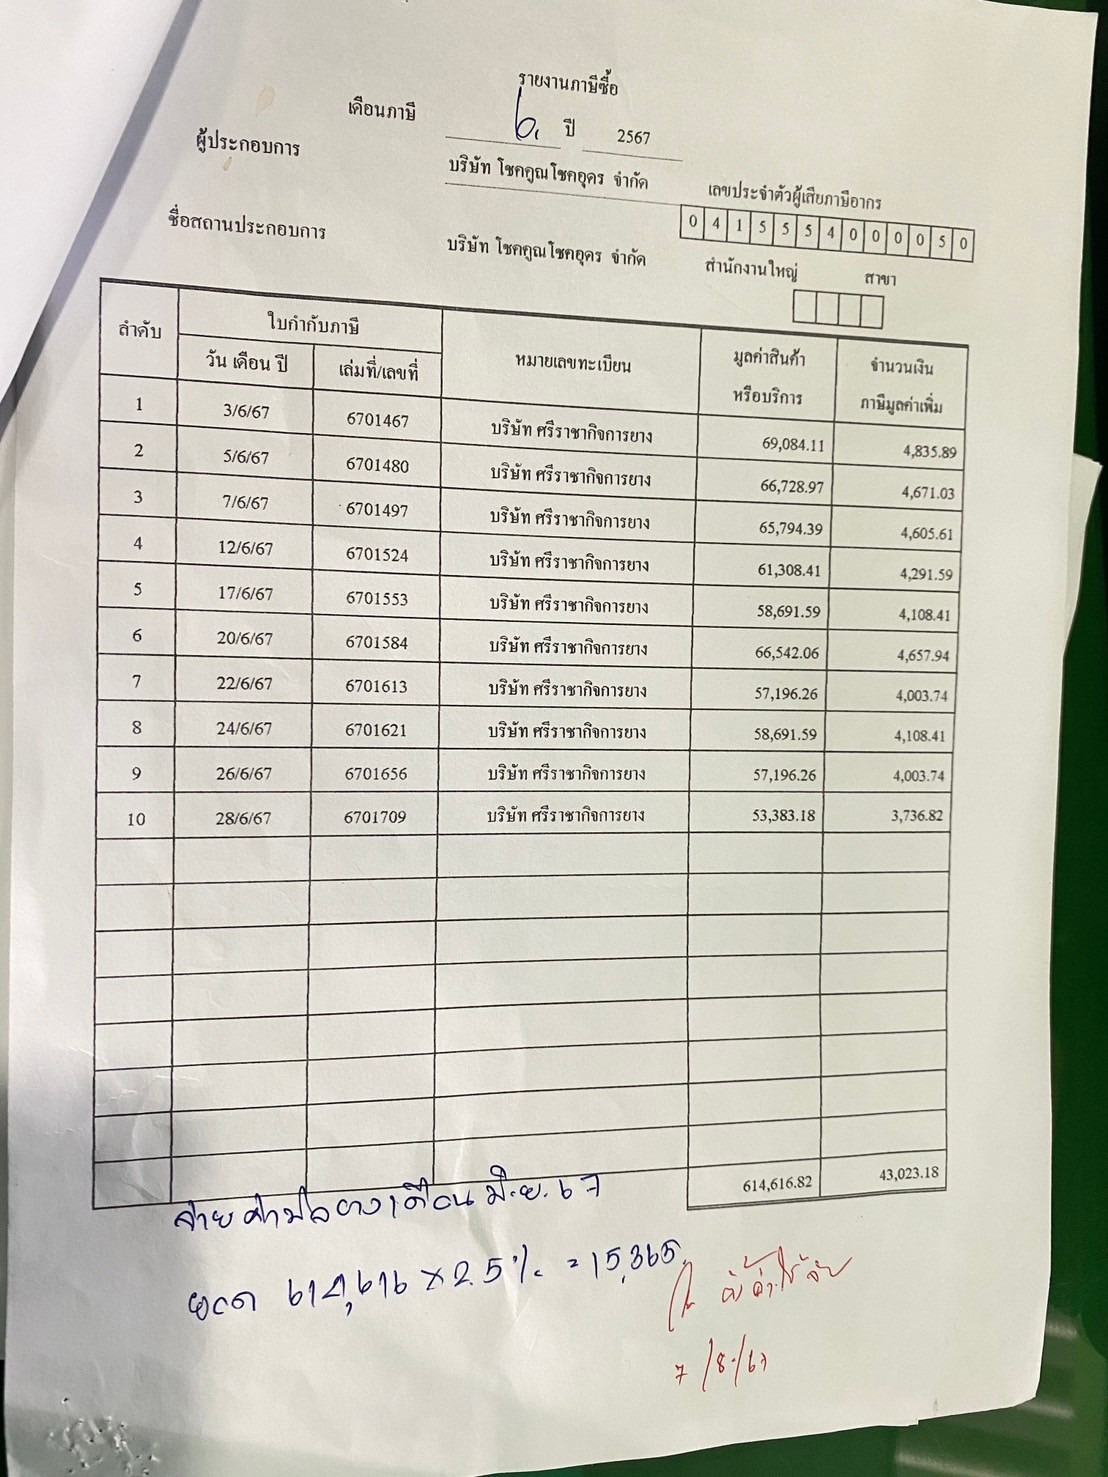 รายงานภาษีซื้อ
เดือนภาษี 6. ปี 2567
ผู้ประกอบการ บริษัท โชคคูณโชคอุดร จำกัด เลขประจำตัวผู้เสียภาษีอากร
0 4 1 5 5 5 4 0 0 0 0 5 0
ชื่อสถานประกอบการ บริษัท โชคคูณโชคอุดร จำกัด สำนักงานใหญ่ สาขา
ลำดับ ใบกำกับภาษี หมายเลขทะเบียน มูลค่าสินค้า จำนวนเงิน
วัน เดือน ปี เล่มที่/เลขที่ หรือบริการ ภาษีมูลค่าเพิ่ม
1 3/6/67 6701467 บริษัท ศรีราชากิจการยาง 69,084.11 4,835.89
2 5/6/67 6701480 บริษัท ศรีราชากิจการยาง 66,728.97 4,671.03
3 7/6/67 6701497 บริษัท ศรีราชากิจการยาง 65,794.39 4,605.61
4 12/6/67 6701524 บริษัท ศรีราชากิจการยาง 61,308.41 4,291.59
5 17/6/67 6701553 บริษัท ศรีราชากิจการยาง 58,691.59 4,108.41
6 20/6/67 6701584 บริษัท ศรีราชากิจการยาง 66,542.06 4,657.94
7 22/6/67 6701613 บริษัท ศรีราชากิจการยาง 57,196.26 4,003.74
8 24/6/67 6701621 บริษัท ศรีราชากิจการยาง 58,691.59 4,108.41
9 26/6/67 6701656 บริษัท ศรีราชากิจการยาง 57,196.26 4,003.74
10 28/6/67 6701709 บริษัท ศรีราชากิจการยาง 53,383.18 3,736.82
614,616.82 43,023.18
จ่าย ยางเดือน มิ.ย. 67
ยอด 614,616 x 2.5% = 15,365.
7/8/67